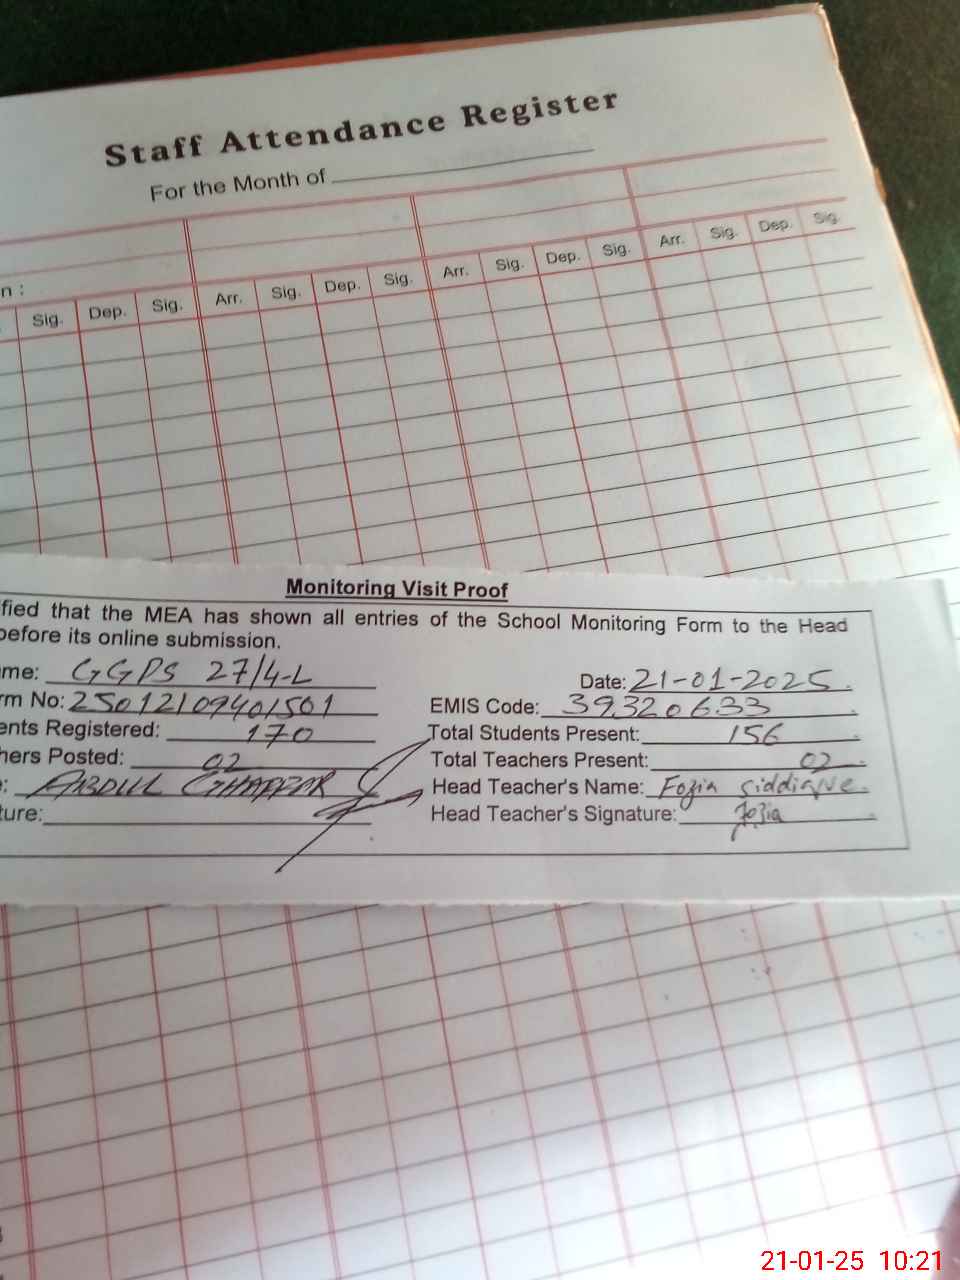 Staff Attendance Register
For the Month of
n :
Sig. Dep. Sig. Arr. Sig. Dep. Sig. Arr. Sig. Dep. Sig. Arr. Sig. Dep. Sig.
Monitoring Visit Proof
fied that the MEA has shown all entries of the School Monitoring Form to the Head
before its online submission.
me: GGPS 27/4-L Date: 21-01-2025
rm No: 25012109401501 EMIS Code: 39320633
ents Registered: 170 Total Students Present: 156
hers Posted: 02 Total Teachers Present: 02
: ABDUL GHAFFAR Head Teacher's Name: Fozia Siddique.
ture: Head Teacher's Signature: Fozia
21-01-25 10:21